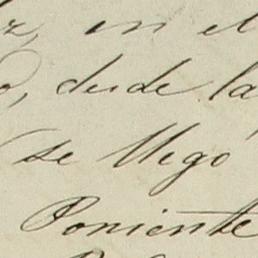 en el
desde la
se llegó
Poniente